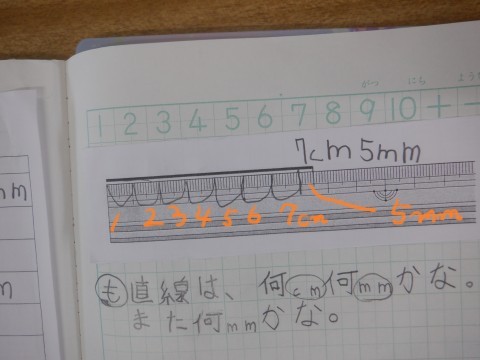 がつ にち よう
1 2 3 4 5 6 7 8 9 10 + −
7cm 5mm
1 2 3 4 5 6 7cm 5mm
も 直線は、何cm何mmかな。
また何mmかな。
mm
m